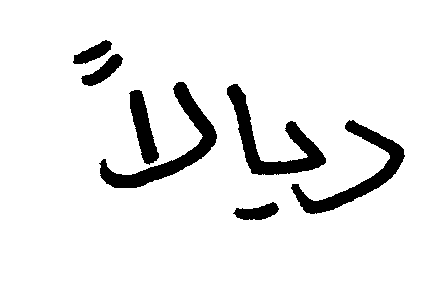 ريالاً